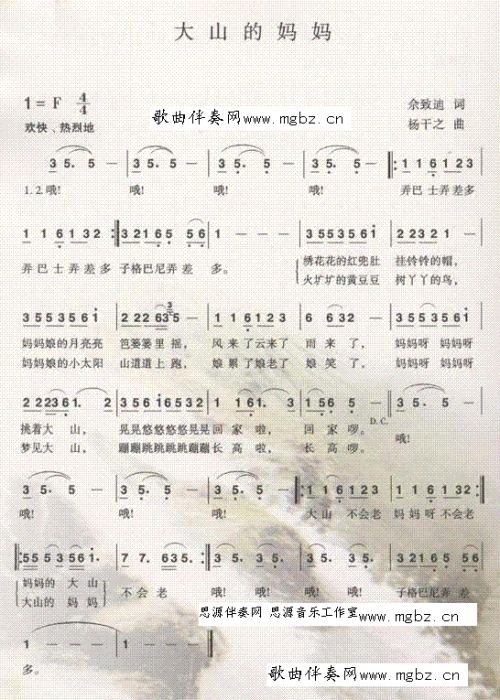 大山的妈妈
1=F 4/4
余致迪 词
欢快、热烈地
歌曲伴奏网www.mgbz.cn
杨干之 曲
3 5. 5 — 3 5. 5 — 3 5. 5 — 3 5. 5 — 1 1 6 1 2 3
1.2.哦! 哦! 哦! 哦! 弄巴士弄差多
1 1 6 1 3 2 3 2 1 6 1 6 5 6 5 1 — — 3 5 5 3 5 5 6 1 2 2 3 2 1
弄巴士弄差多 子格巴尼弄差 多。 绣花花的红兜肚 挂铃铃的帽,
火圹圹的黄豆豆 树丫丫的鸟,
3 5 5 3 5 5 6 1 2 2 2 6 3 5 —
妈妈娘的月亮亮 笆篓篓里摇, 风来了云来了 雨来了, 妈妈呀 妈妈呀
妈妈娘的小太阳 山道道上跑, 娘累了娘老了 娘笑了, 妈妈呀 妈妈呀
D.C.
挑着大山, 晃晃悠悠悠悠晃晃 回家啦, 回家啰。 哦!
梦见大山, 蹦蹦跳跳跳跳蹦蹦 长高啦, 长高啰。
3 5. 5 — 3 5. 5 — 3 5. 5 — 1 1 6 1 2 3 1 1 6 1 3 2
哦! 哦! 哦! 大山 不会老 妈妈呀不会老
5 5 5 3 5 6 1 7 7. 6 3 5. 3 5. 5 — 3 5. 5 —
妈妈的大山 不会老 哦! 哦! 子格巴尼弄差
大山的妈妈
思源伴奏网 思源音乐工作室www.mgbz.cn
1 — — — 1 — — —
多。
歌曲伴奏网www.mgbz.cn